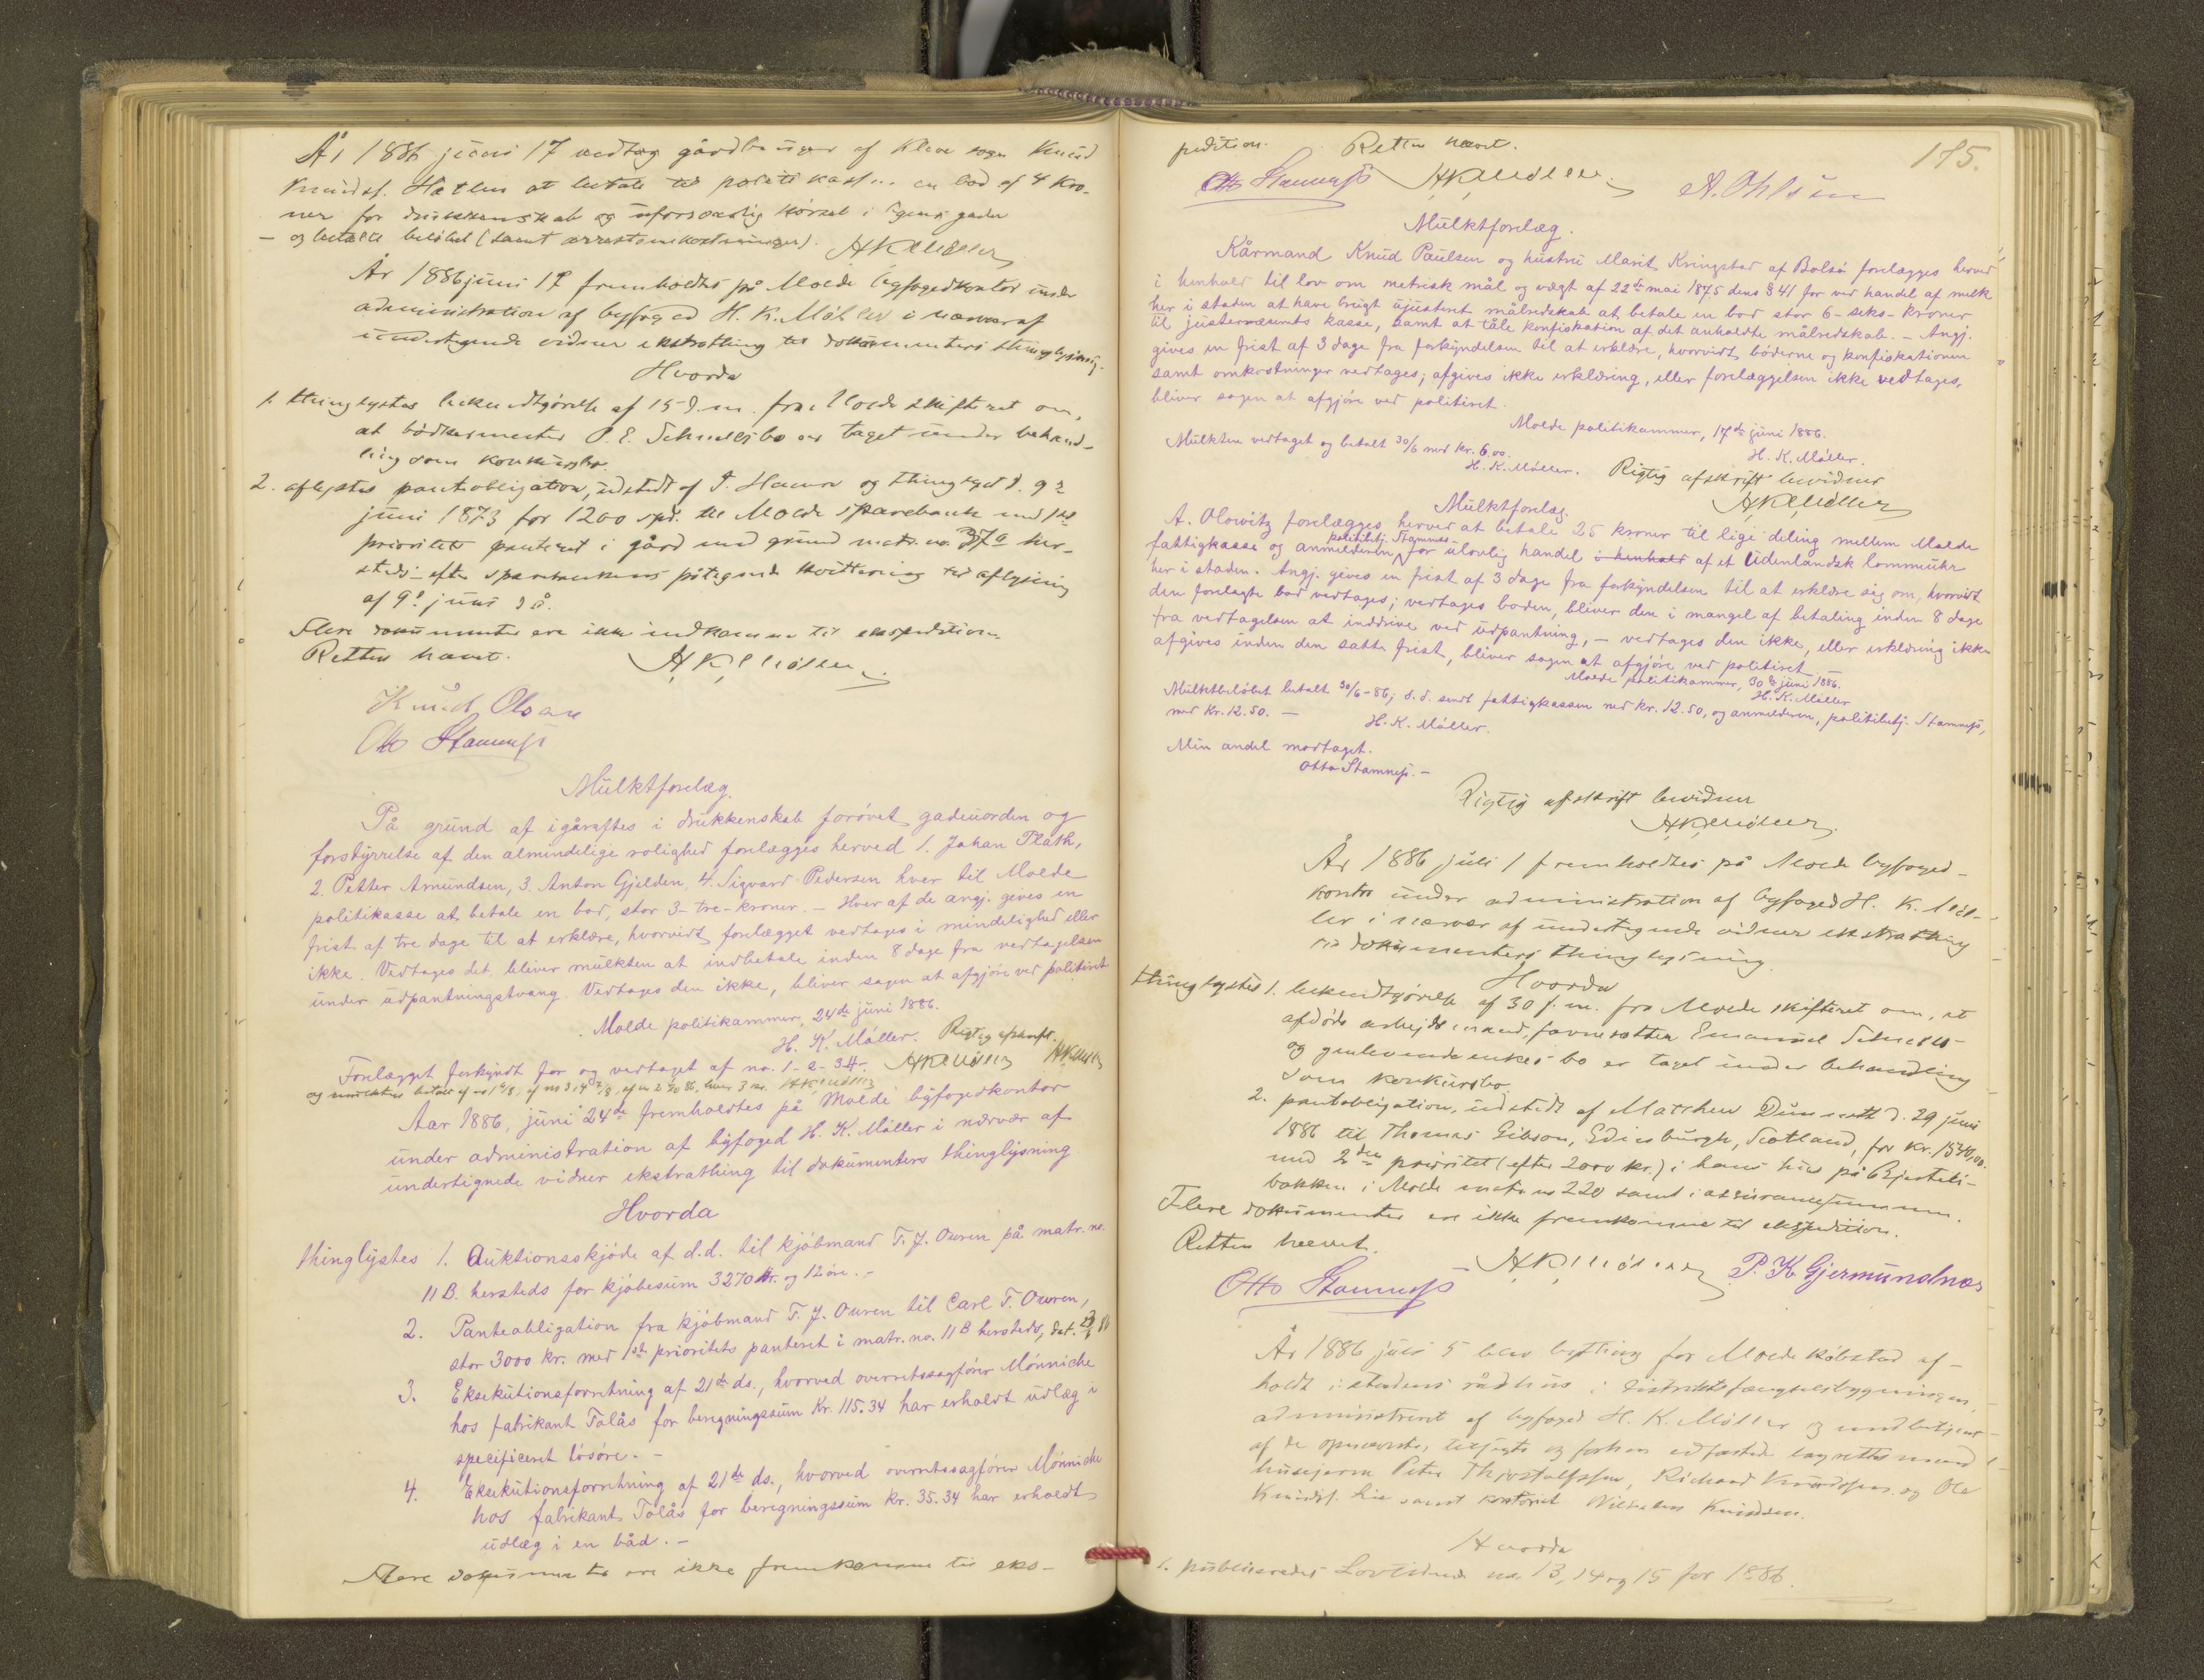 År 1886 juni 17 vedtog gårdbruger af Kleve sogn Knud
Knuds. Hatlen at betale til politikass... en bod af 4 kro-
ner for drukkenskab og uforsvarlig körsel i byens gader
– og betalte belöbet (samt arrestomkostninger). HKMöller
År 1886 juni 17 fremholdtes på Molde byfogedkontor under
administration af byfoged H. K. Möller i nærvær af
undertegnede vidner ekstrathing til dokumenters thinglysning.
Hvorda
1. thinglystes bekjendtgörelse af 15 d.m. fra Molde skifteret om,
at bödkermester P. E. Schnellsbo er taget under behand-
ling som konkursbo.
2. aflystes panteobligation, udstedt af I. Hamre og thinglyst d. 9de
juni 1873 for 1200 spd. til Molde sparebank med 1ste
prioritets panteret i gård med grund matr. no. 37a her-
steds – efter sparebankens påtegnede kvittering til aflysning
af 9de juni d. å.
Flere dokumenter ere ikke indkomne til ekspedition.
Retten hævet.
HKMöller.
Knud Olsen
Otto Stamness
Mulktforelæg.
På grund af igåraftes i drukkenskab forövet gadeuorden og
forstyrrelse af den almindelige rolighed forelægges herved 1. Johan Flath,
2. Petter Amundsen, 3. Anton Gjelden, 4. Sigvard Pedersen hver til Molde
politikasse at betale en bod, stor 3-tre-kroner. – Hver af de angj. gives en
frist af tre dage til at erklære, hvorvidt forelægget vedtages i mindelighed eller
ikke. Vedtages det, bliver mulkten at indbetale inden 8 dage fra vedtagelsen
under udpantningstvang. Vedtages den ikke, bliver sagen at afgjöre ved politiret
Molde politikammer, 24de juni 1886.
H. K. Möller. Rigtig afskrift.
HKMöller
Forelægget forkyndt for og vedtaget af no. 1-2-3-4. HKMöller
og mulkten betalt af no 1 6/8, af no 3, 4 7/8, af no 2 7/10 86, hver 3 kr. HKMöller
Aar 1886, juni 24de fremholdtes på Molde byfogedkontor
under administration af byfoged H. K. Möller i nærvær af
undertignede vidner ekstrathing til dokumenters thinglysning
Hvorda
thinglystes 1. Auktionsskjöde af d.d. til kjöbmand T. J. Owren på matr. no.
11 B. hersteds for kjöbesum 3270 kr. og 12 öre. –
2. Panteobligation fra kjöbmand T. J. Owren til Carl T. Owren,
stor 3000 kr. med 1ste prioritets panteret i matr. no. 11 B hersteds, dat. 23/6 86
3. Eksekutionsforretning af 21de ds., hvorved overretssagförer Mönniche
hos fabrikant Tolås for beregningssum kr. 115.34 har erholdt udlæg i
specificeret lösöre. –
4. Eksekutionsforretning af 21de ds., hvorved overretssagförer Mönniche
hos fabrikant Tolås for beregningssum kr. 35.34 har erholdt
udlæg i en båd. –
Flere dokumenter ere ikke fremkomne til eks-
175.
pedition. Retten hævet.
Otto Stamness HKMöller. A. Ohlsen
Mulktforelæg.
Kårmand Knud Paulsen og hustru Marit Kringstad af Bolsö forelægges herved
i henhold til lov om metrisk mål og vægt af 22de mai 1875 dens § 41 for ved handel af melk
her i staden at have brugt ujusteret målredskab at betale en bod stor 6-seks-kroner
til justervæsenets kasse, samt at tåle konfiskation af det anholdte målredskab. – Angj.
gives en frist af 3 dage fra forkyndelsen til at erklære, hvorvidt böderne og konfiskationen
samt omkostninger vedtages; afgives ikke erklæring, eller forelæggelsen ikke vedtages,
bliver sagen at afgjöre ved politiret.
Molde politikammer, 17de juni 1886.
H. K. Möller.
Mulkten vedtaget og betalt 30/6 med kr. 6.00.
H. K. Möller. Rigtig afskrift bevidner
HKMöller
Mulktforelæg.
A. Olowitz forelægges herved at betale 25 kroner til lige deling mellem Molde
fattigkasse og anmelderen politibetj. Stamnes for ulovlig handel i henhold af et udenlandsk lommeuhr
her i staden. Angj. gives en frist af 3 dage fra forkyndelsen til at erklære sig om, hvorvidt
den forelagte bod vedtages; vedtages boden, bliver den i mangel af betaling inden 8 dage
fra vedtagelsen at inddrive ved udpantning, – vedtages den ikke, eller erklæring ikke
afgives inden den satte frist, bliver sagen at afgjöre ved politiret
Molde politikammer, 30te juni 1886.
H. K. Möller
Mulktbelöbet betalt 30/6-86; d.d. sendt fattigkassen med kr. 12.50, og anmelderen, politibetj. Stamness,
med kr. 12.50. – H. K. Möller.
Min andel modtaget.
Otto Stamness. –
Rigtig afskrift bevidner
HKMöller.
År 1886 juli 1 fremholdtes på Molde byfoged-
kontor under administration af byfoged H. K. Möl-
ler i nærvær af undertegnede vidner ekstrathing
til dokumenters thinglysning.
Hvorda
thinglystes 1. bekendtgörelse af 30 f.m. fra Molde skifteret om, at
afdöde arbejdsmand, favnesætter Emanuel
og genlevende enkes bo er taget under behandling
som konkursbo.
2. pantobligation, udstedt af Matthew Dunsmith d. 29 juni
1886 til Thomas Gibson, Edinburgh, Scotland, for kr. 1540,00.
med 2den prioritet (efter 2000 kr.) i hans hus på
bakken i Molde matr. no 220 samt i assurancesummen.
Flere dokumenter ere ikke fremkomne til ekspedition.
Retten hævet.
HKMöller P. K. Gjermundnæs
Otto Stamness
År 1886 juli 5 blev bything for Molde köbstad af-
holdt i stadens rådhus i distriktsfængselsbygningen,
administreret af byfoged H. K. Möller og medbetjent
af de opnævnte, tilsagte og forhen edfæstede lagrettesmænd
husejerne Peter Thjostolfssen, Richard Knudssen og Ole
Knuds. Lie samt kontorist Wilhelm Knudsen.
Hvorda
1. publiceredes Lovtidende no. 13, 14 og 15 for 1886.